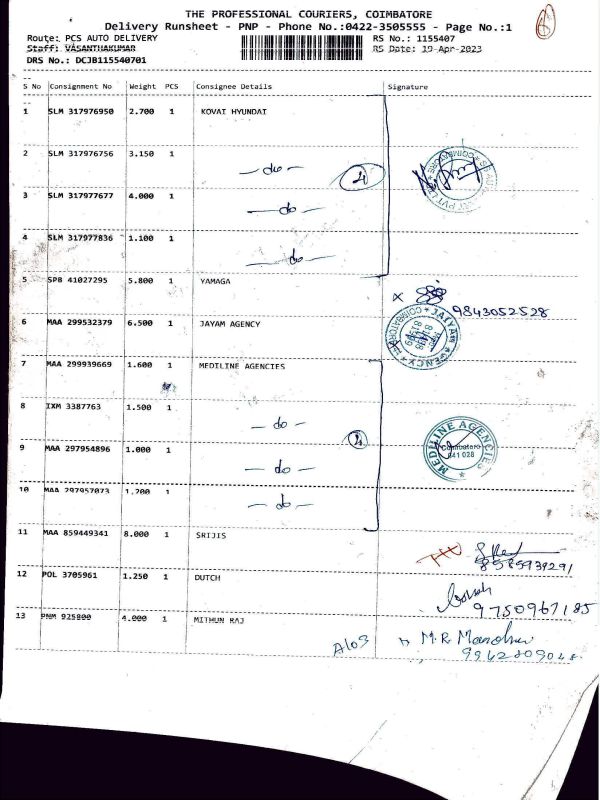 THE PROFESSIONAL COURIERS, COIMBATORE
Delivery Runsheet - PNP - Phone No.:0422-3505555 - Page No.:1
Route: PCS AUTO DELIVERY RS No.: 1155407
Staff: VASANTHAKUMAR RS Date: 19-Apr-2023
DRS No.: DCJB115540701
S No Consignment No Weight PCS Consignee Details Signature
1 SLM 317976950 2.700 1 KOVAI HYUNDAI
2 SLM 317976756 3.150 1
— do — 4
3 SLM 317977677 4.000 1
— do —
4 SLM 317977836 1.100 1
— do —
5 SPB 41027295 5.800 1 YAMAGA
x 9843052528
6 MAA 299532379 6.500 1 JAYAM AGENCY
7 MAA 299939669 1.600 1 MEDILINE AGENCIES
8 IXM 3387763 1.500 1
— do — 4
MEDILINE AGENCIES
Coimbatore
641 028
9 MAA 297954896 1.000 1
— do —
10 MAA 297957073 1.200 1
— do —
11 MAA 859449341 8.000 1 SRIJIS
12 POL 3705961 1.250 1 DUTCH
9750967185
13 PNM 925800 4.000 1 MITHUN RAJ